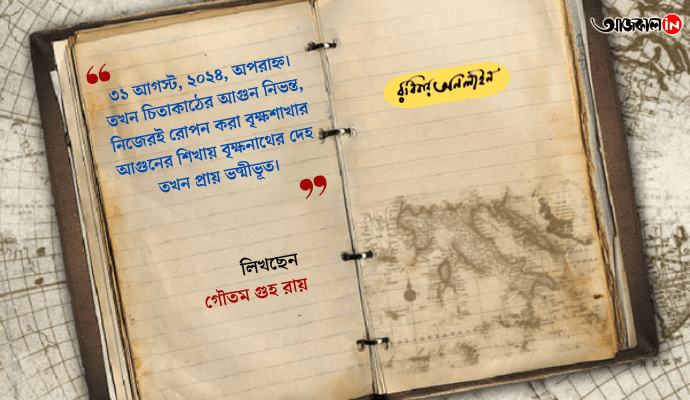 আজকাল IN
❝
৩১ আগস্ট, ২০২৪, অপরাহ্ন।
তখন চিতাকাঠের আগুন নিভন্ত,
নিজেরই রোপন করা বৃক্ষশাখার
আগুনের শিখায় বৃক্ষনাথের দেহ
তখন প্রায় ভষ্মীভূত।
❞
লিখছেন
গৌতম গুহ রায়
রবিবার অনলাইন